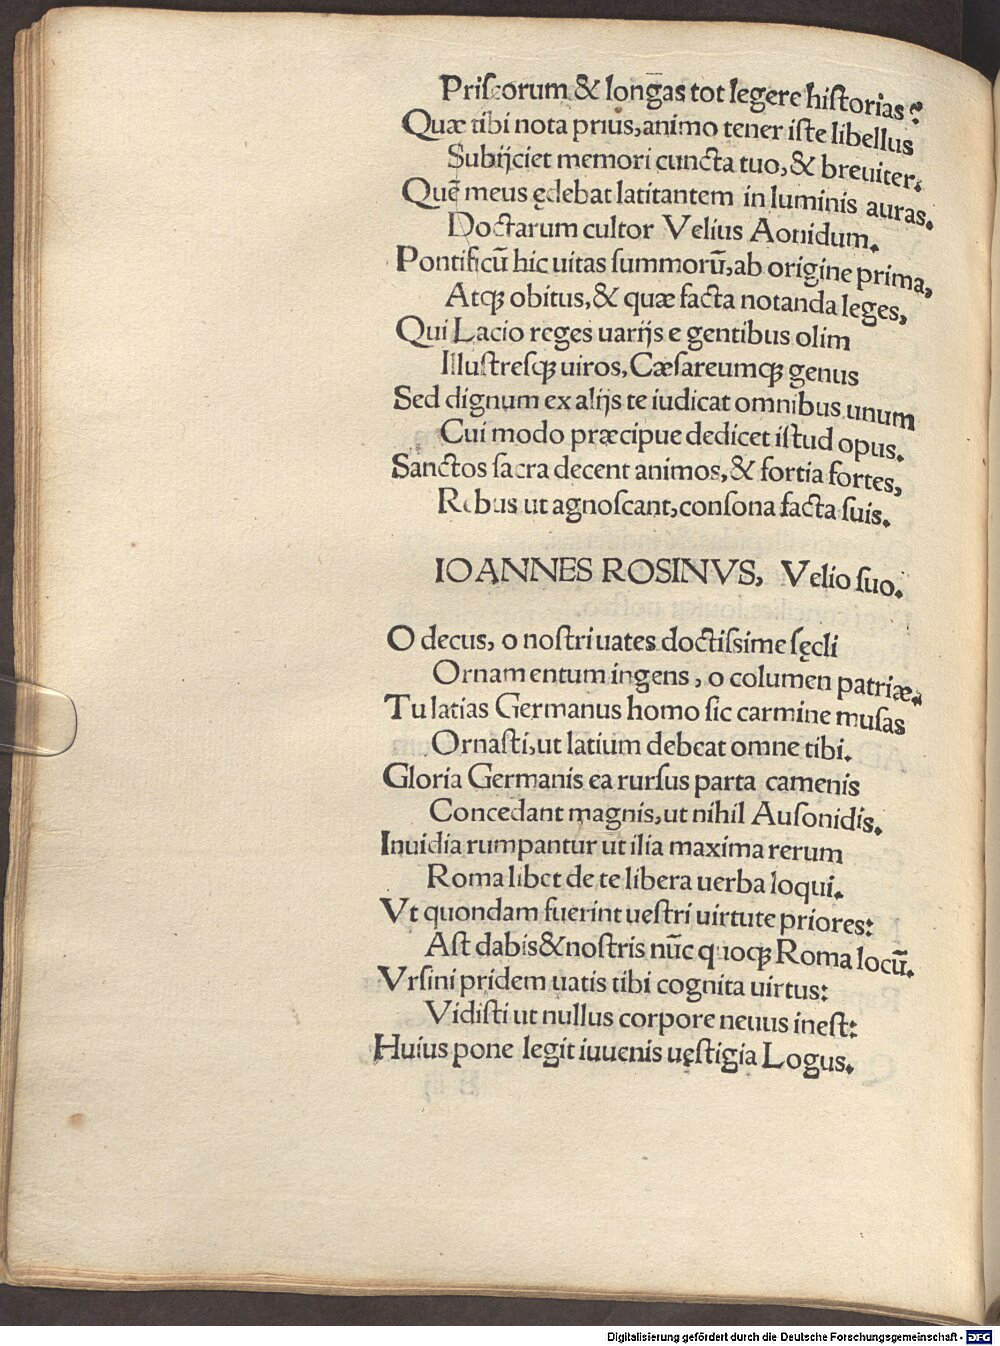 Priſcorum & longas tot legere hiſtorias?
Quæ tibi nota prius, animo tener iſte libellus
Subijciet memori cuncta tuo, & breuiter.
Quẽ meus ędebat latitantem in luminis auras.
Doctarum cultor Velius Aonidum.
Pontificũ hic uitas ſummorũ, ab origine prima,
Atqꝫ obitus, & quæ facta notanda leges,
Qui Lacio reges uarijs e gentibus olim
Illuſtreſqꝫ uiros, Cæſareumqꝫ genus
Sed dignum ex alijs te iudicat omnibus unum
Cui modo præcipue dedicet iſtud opus.
Sanctos ſacra decent animos, & fortia fortes,
Rebus ut agnoſcant, conſona facta ſuis.
IOANNES ROSINVS, Velio ſuo.
O decus, o noſtri uates doctiſsime ſęcli
Ornamentum ingens, o columen patriæ.
Tu latias Germanus homo ſic carmine muſas
Ornaſti, ut latium debeat omne tibi.
Gloria Germanis ea rurſus parta camenis
Concedant magnis, ut nihil Auſonidis.
Inuidia rumpantur ut ilia maxima rerum
Roma libet de te libera uerba loqui.
Vt quondam fuerint ueſtri uirtute priores:
Aſt dabis & noſtris nũc quoqꝫ Roma locũ.
Vrſini pridem uatis tibi cognita uirtus:
Vidiſti ut nullus corpore neuus ineſt:
Huius pone legit iuuenis uęſtigia Logus.
Digitalisierung gefördert durch die Deutsche Forschungsgemeinschaft - DFG